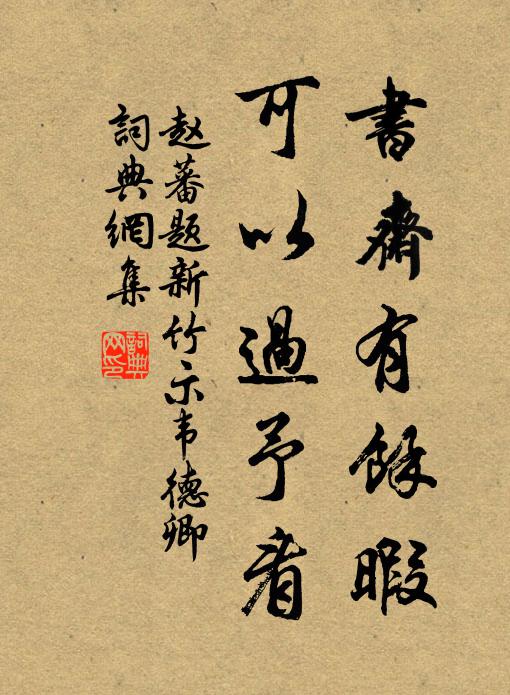 書齋有餘暇
可以過予看
赵蕃题新竹示韦德卿
詞典網集
詞典网印